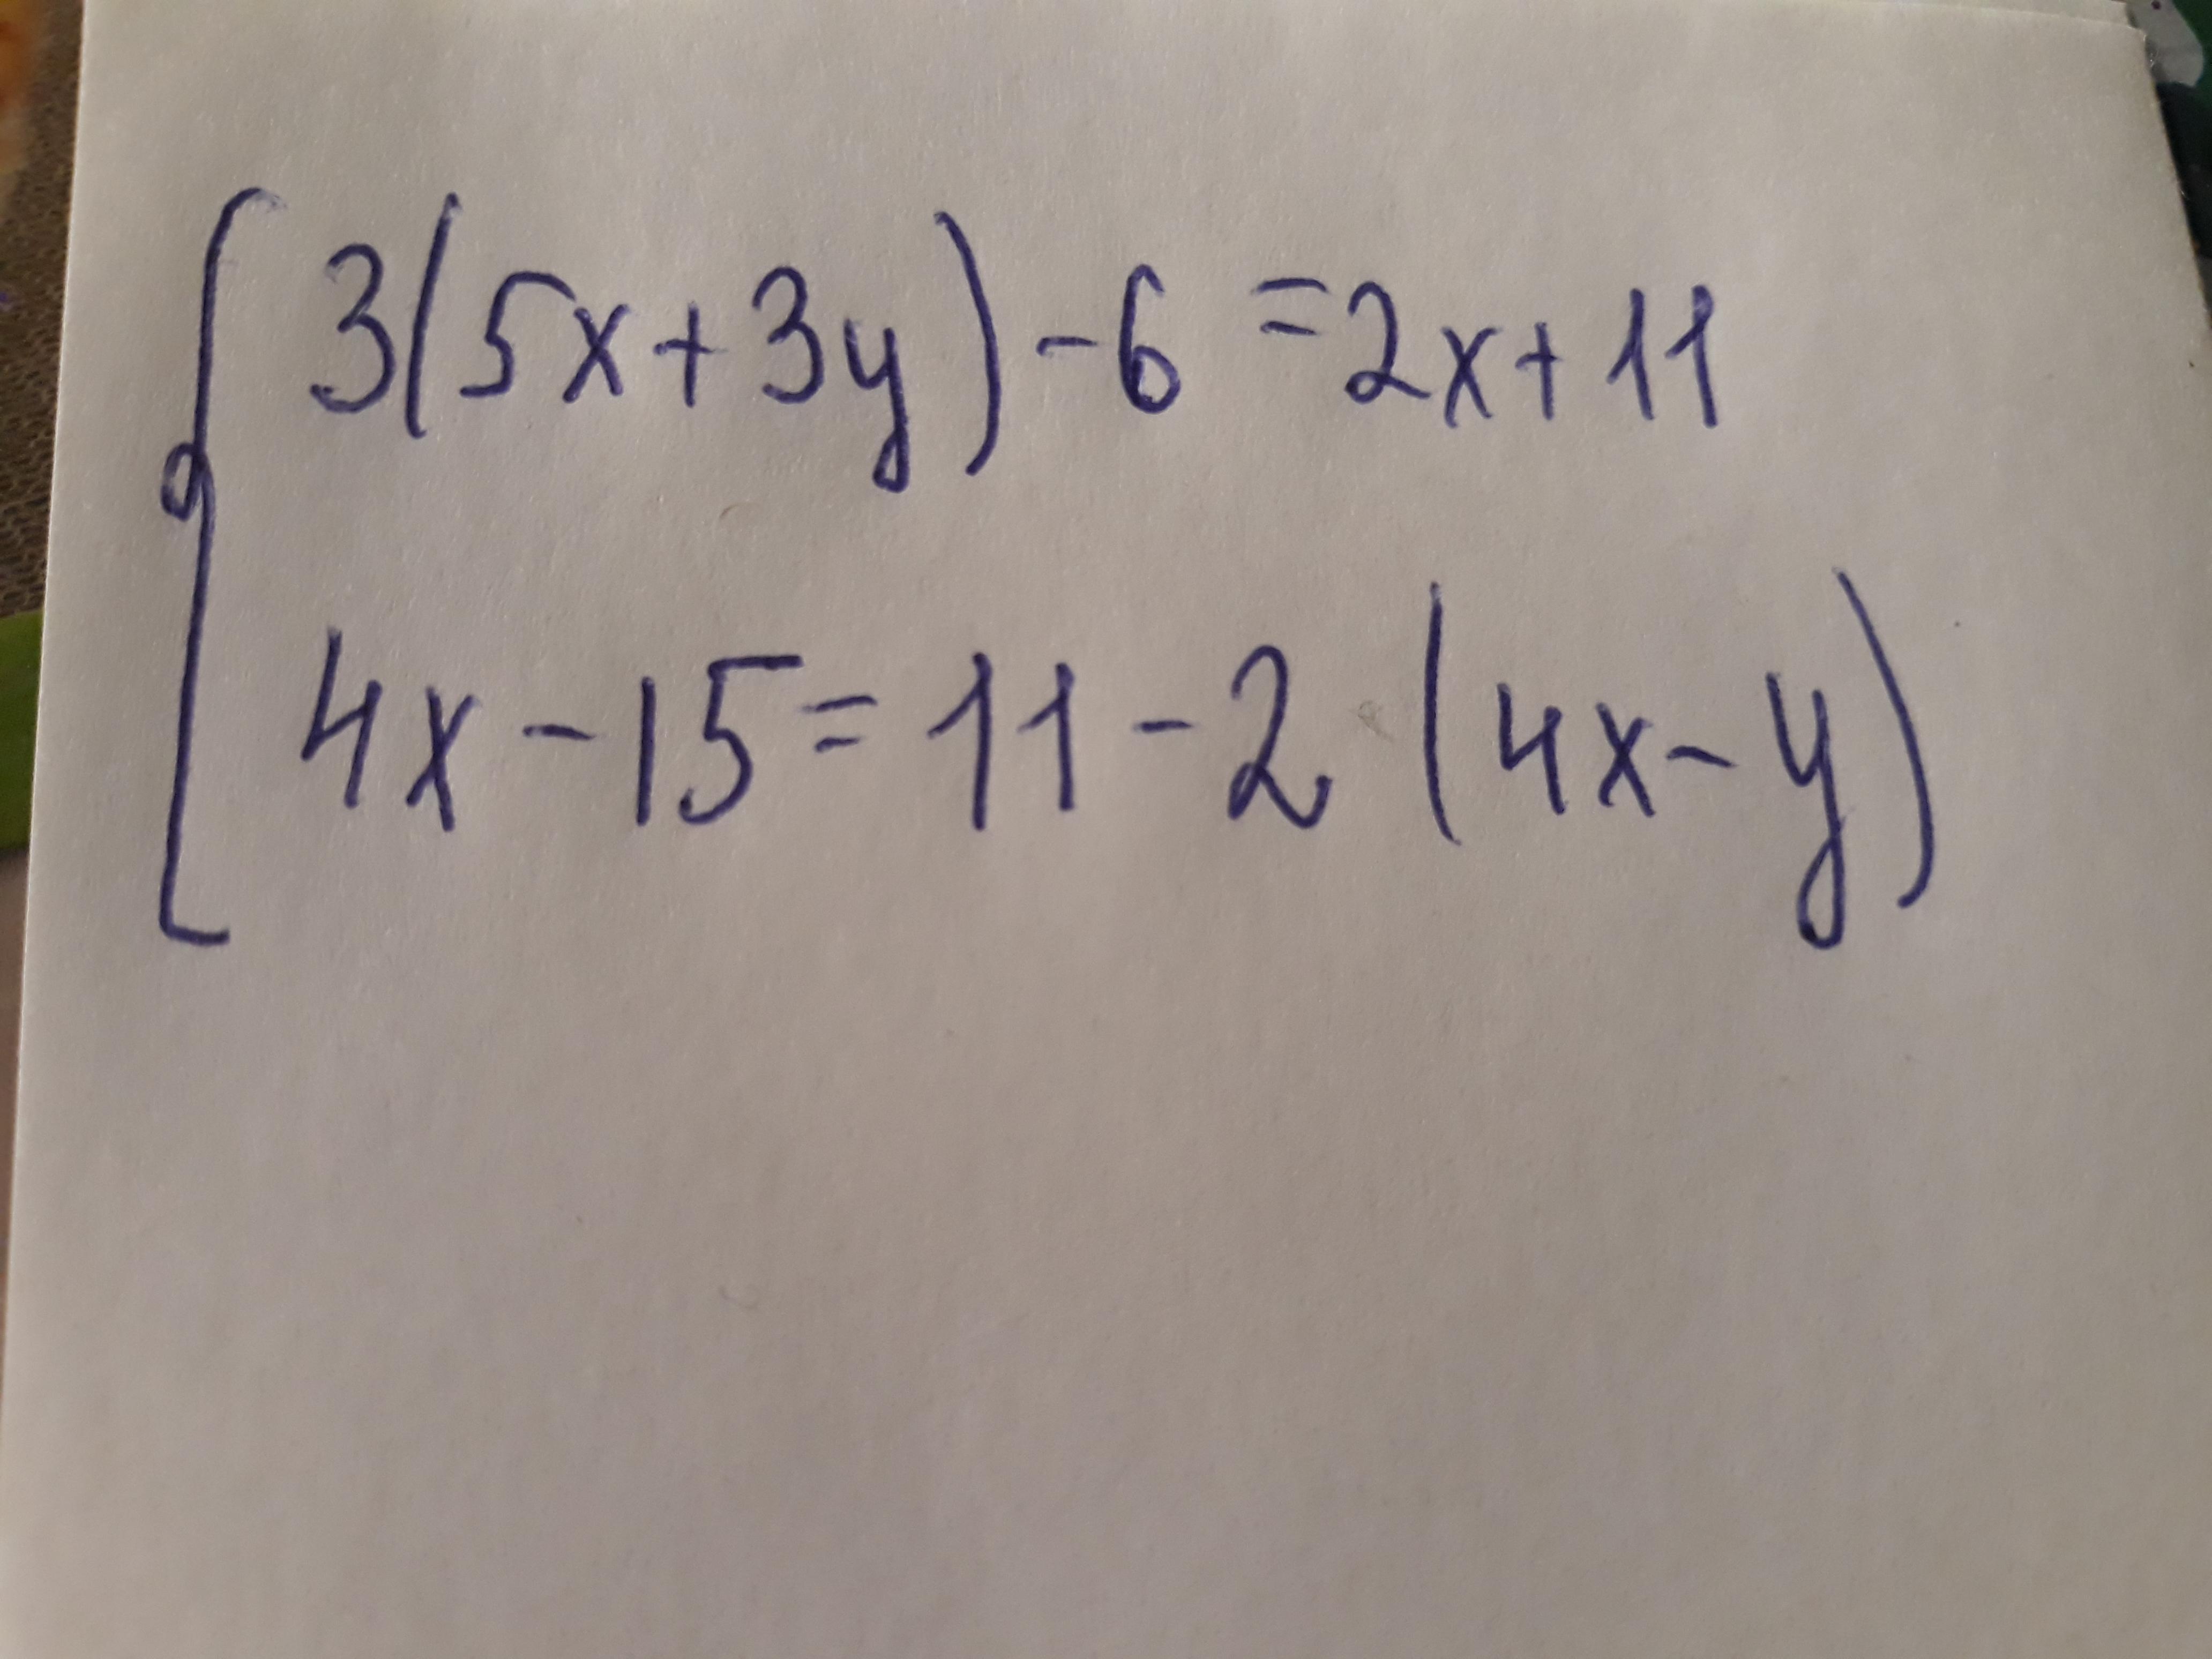 3(5x+3y)-6=2x+11
4x-15=11-2(4x-y)